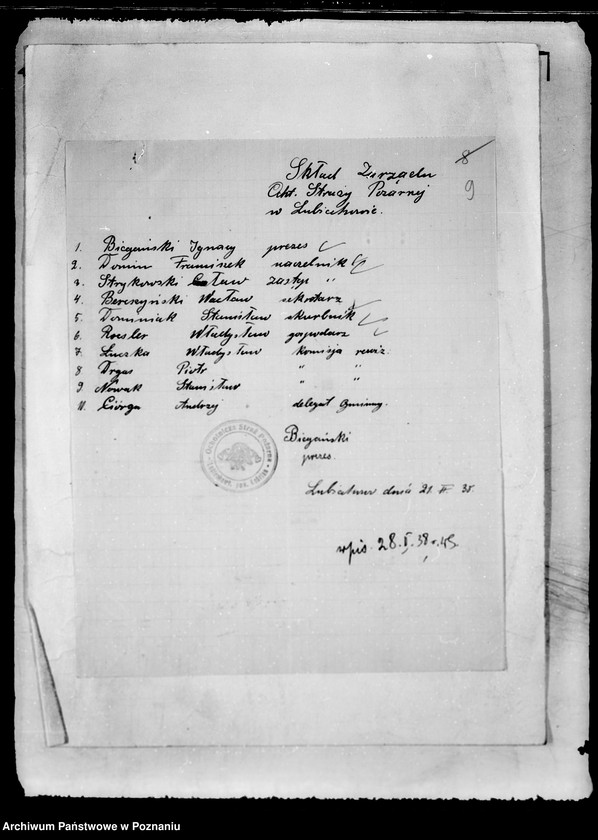 8
9
Skład Zarządu
Ocht. Straży Pożarnej
w Lubiatowie.
1. Biegański Ignacy prezes
2. Domin Franciszek naczelnik
3. Strykowski Cz​sław zastęp "
4. Berczyński Wacław sekretarz
5. Dominiak Stanisław skarbnik
6. Roesler Władysław gospodarz
7. Łuczka Władysław komisja rewiz.
8 Drgas Piotr " "
9 Nowak Stanisław " "
11. Ciorga Andrzej delegat Gminny.
Biegański
prezes.
Ochotnicza Straż Pożarna
dnia 21. 38.
wpis. 28. I. 38 r.
Archiwum Państwowe w Poznaniu